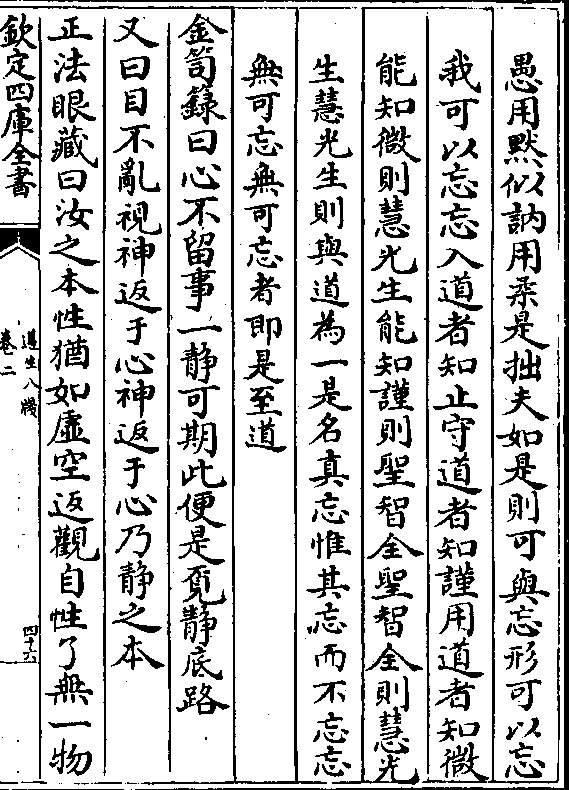 愚用黙似訥用柔是拙夫如是則可與忘形可以忘
我可以忘忘入道者知止守道者知謹用道者知微
能知微則慧光生能知謹則聖智全聖智全則慧光
生慧光生則與道為一是名真忘惟其忘而不忘忘
無可忘無可忘者即是至道
金笥錄曰心不留事一静可期此便是覓静底路
又曰目不亂視神返于心神返于心乃静之本
正法眼藏曰汝之本性猶如虛空返觀自性了無一物
欽定四庫全書
遵生八牋
卷二
四十六